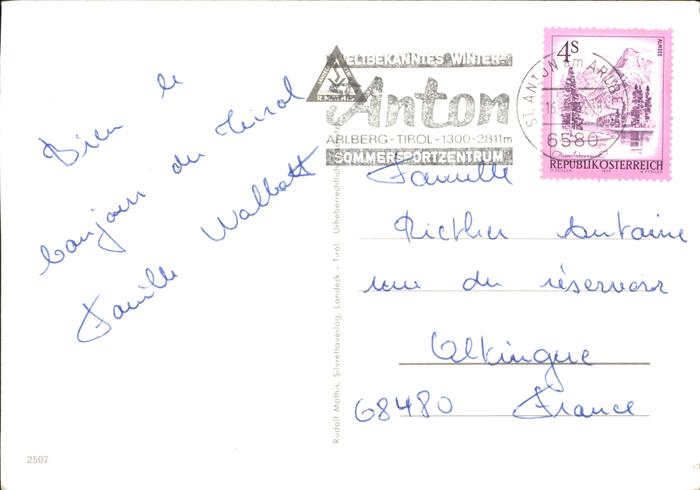 Bien le
bonjour du Tirol
Famille Walbott
WELTBEKANNTES WINTER-
Anton
ARLBERG - TIROL - 1300-2811m
SOMMERSPORTZENTRUM
ST. ANTON am ARLBERG
6580
4S
ALMSEE
REPUBLIK ÖSTERREICH
Famille
Riether Antoine
rue du réservoir
Oltingue
68480 France
Rudolf Mathis, Silvrettaverlag, Landeck - Tirol. Urheberrechtlich
2507